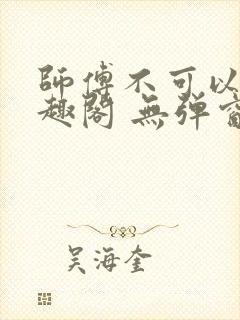 師傅不可以
趣閣 無彈窗
吴海奎